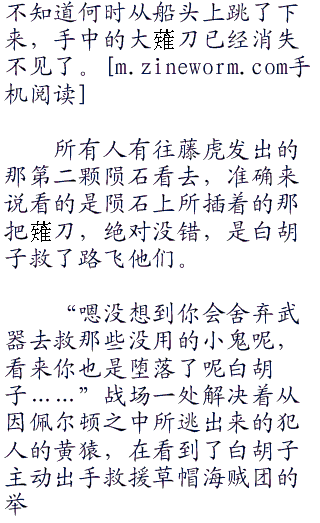 不知道何时从船头上跳了下
来，手中的大薙刀已经消失
不见了。[m.zineworm.com手
机阅读]
所有人有往藤虎发出的
那第二颗陨石看去，准确来
说看的是陨石上所插着的那
把薙刀，绝对没错，是白胡
子救了路飞他们。
“嗯没想到你会舍弃武
器去救那些没用的小鬼呢，
看来你也是堕落了呢白胡
子……”战场一处解决着从
因佩尔顿之中所逃出来的犯
人的黄猿，在看到了白胡子
主动出手救援草帽海贼团的
举